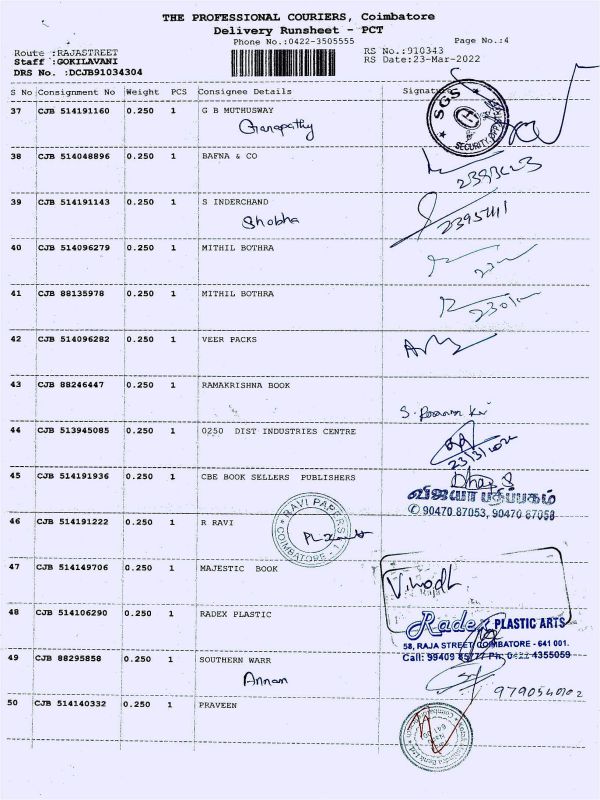 THE PROFESSIONAL COURIERS, Coimbatore
Delivery Runsheet - PCT
Phone No.:0422-3505555
Page No.:4
Route :RAJASTREET
Staff :GOKILAVANI
DRS No. :DCJB91034304
RS No.:910343
RS Date:23-Mar-2022
S No Consignment No Weight PCS Consignee Details Signature
37 CJB 514191160 0.250 1 G B MUTHUSWAY
Ganapathy
SGS
SECURITY
38 CJB 514048896 0.250 1 BAFNA & CO
39 CJB 514191143 0.250 1 S INDERCHAND
Shobha
40 CJB 514096279 0.250 1 MITHIL BOTHRA
41 CJB 88135978 0.250 1 MITHIL BOTHRA
42 CJB 514096282 0.250 1 VEER PACKS
43 CJB 88246447 0.250 1 RAMAKRISHNA BOOK
44 CJB 513945085 0.250 1 0250 DIST INDUSTRIES CENTRE
45 CJB 514191936 0.250 1 CBE BOOK SELLERS PUBLISHERS
விஜயா பதிப்பகம்
✆ 90470 87053, 90470 87058
46 CJB 514191222 0.250 1 R RAVI
RAVI PAPERS
COIMBATORE - 1
47 CJB 514149706 0.250 1 MAJESTIC BOOK
Vinodh
48 CJB 514106290 0.250 1 RADEX PLASTIC
Radex PLASTIC ARTS
58, RAJA STREET, COIMBATORE - 641 001.
Call: 99409 85777 Ph: 0422 4355059
49 CJB 88295858 0.250 1 SOUTHERN WARR
Annan
50 CJB 514140332 0.250 1 PRAVEEN